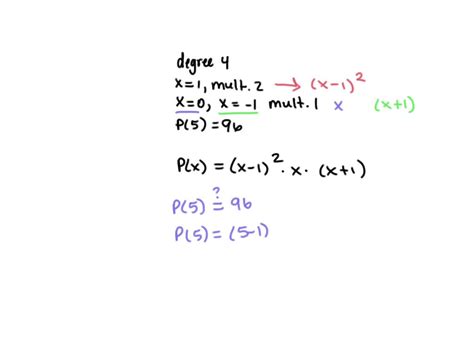 degree 4
x=1, mult. 2 → (x-1)²
x=0, x=-1 mult. 1 x (x+1)
P(5)=96
P(x) = (x-1)² · x · (x+1)
P(5) ≟ 96
P(5) = (5-1)